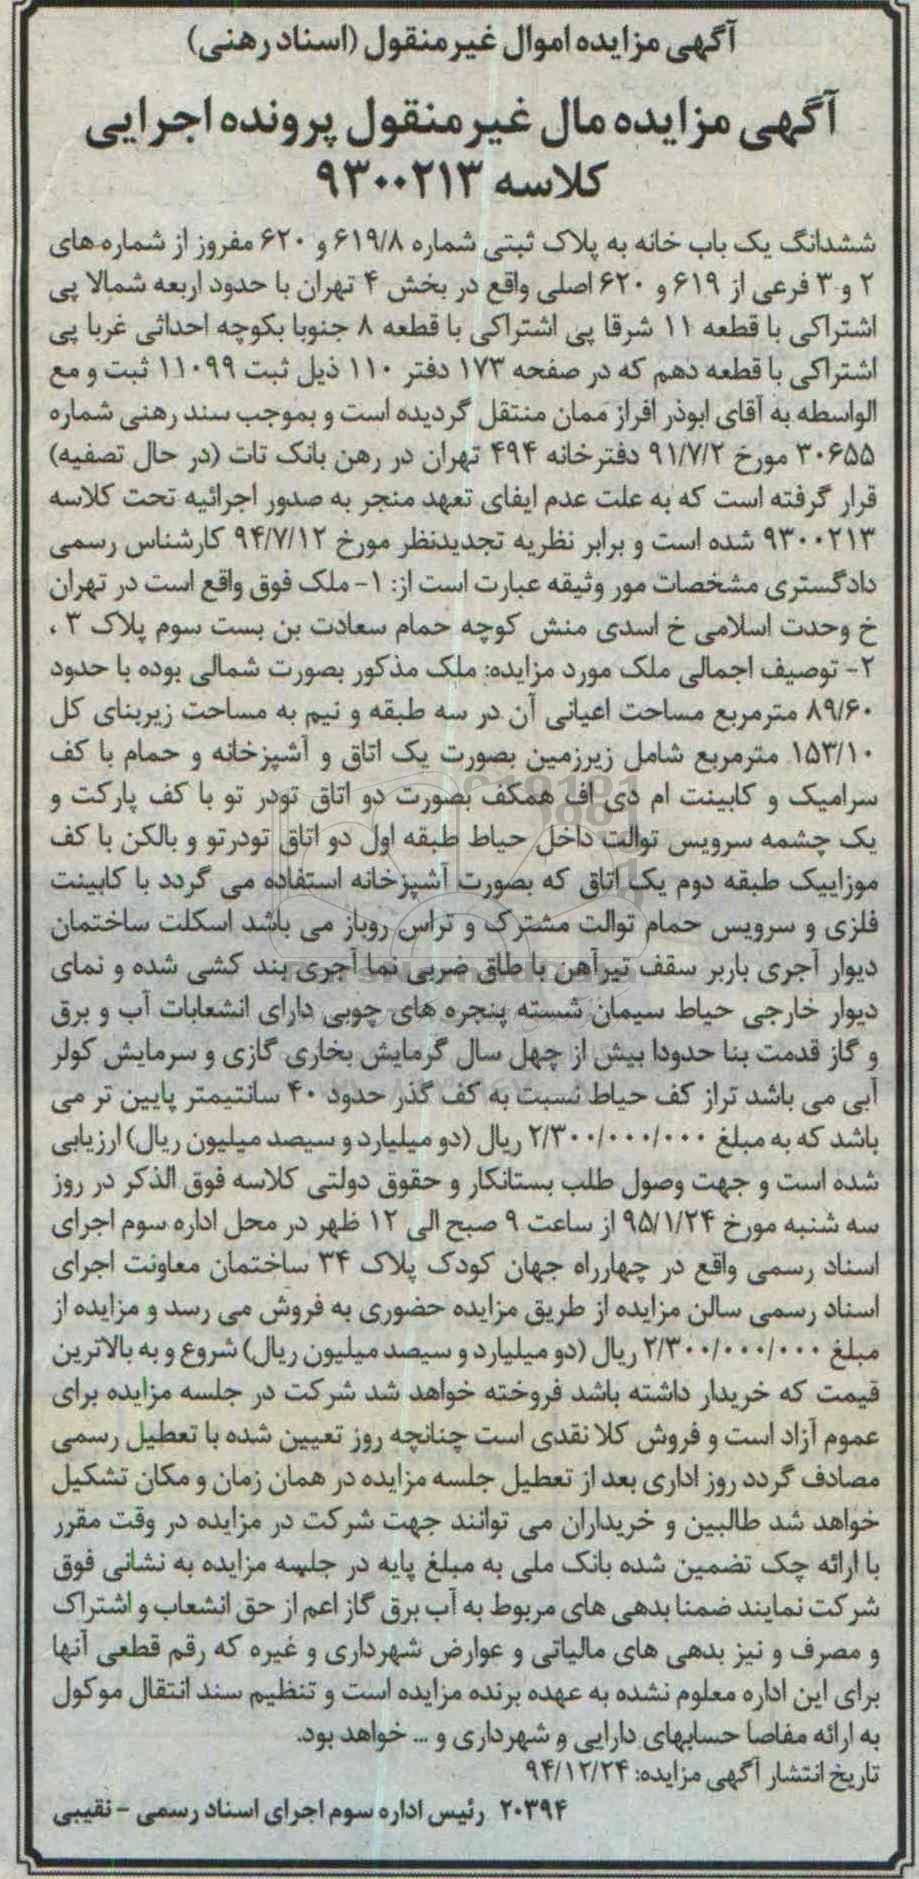 آگهی مزایده اموال غیر منقول (اسناد رهنی)
آگهی مزایده مال غیر منقول پرونده اجرایی
کلاسه ۹۳۰۰۲۱۳
ششدانگ یک باب خانه به پلاک ثبتی شماره ۶۱۹/۸ و ۶۲۰ مفروز از شماره های
۲ و ۳ فرعی از ۶۱۹ و ۶۲۰ اصلی واقع در بخش ۴ تهران با حدود اربعه شمالا پی
اشتراکی با قطعه ۱۱ شرقا پی اشتراکی با قطعه ۸ جنوبا بکوچه احداثی غربا پی
اشتراکی با قطعه دهم که در صفحه ۱۷۳ دفتر ۱۱۰ ذیل ثبت ۱۱۰۹۹ ثبت و مع
الواسطه به آقای ابوذر افراز ممان منتقل گردیده است و بموجب سند رهنی شماره
۳۰۶۵۵ مورخ ۹۱/۷/۲ دفترخانه ۴۹۴ تهران در رهن بانک تات (در حال تصفیه)
قرار گرفته است که به علت عدم ایفای تعهد منجر به صدور اجرائیه تحت کلاسه
۹۳۰۰۲۱۳ شده است و برابر نظریه تجدیدنظر مورخ ۹۴/۷/۱۲ کارشناس رسمی
دادگستری مشخصات مور وثیقه عبارت است از: ۱- ملک فوق واقع است در تهران
خ وحدت اسلامی خ اسدی منش کوچه حمام سعادت بن بست سوم پلاک ۳ ،
۲- توصیف اجمالی ملک مورد مزایده: ملک مذکور بصورت شمالی بوده با حدود
۸۹/۶۰ مترمربع مساحت اعیانی آن در سه طبقه و نیم به مساحت زیربنای کل
۱۵۳/۱۰ مترمربع شامل زیرزمین بصورت یک اتاق و آشپزخانه و حمام با کف
سرامیک و کابینت ام دی اف همکف بصورت دو اتاق تودر تو با کف پارکت و
یک چشمه سرویس توالت داخل حیاط طبقه اول دو اتاق تودرتو و بالکن با کف
موزاییک طبقه دوم یک اتاق که بصورت آشپزخانه استفاده می گردد با کابینت
فلزی و سرویس حمام توالت مشترک و تراس روباز می باشد اسکلت ساختمان
دیوار آجری باربر سقف تیرآهن با طاق ضربی نما آجری بند کشی شده و نمای
دیوار خارجی حیاط سیمان شسته پنجره های چوبی دارای انشعابات آب و برق
و گاز قدمت بنا حدودا بیش از چهل سال گرمایش بخاری گازی و سرمایش کولر
آبی می باشد تراز کف حیاط نسبت به کف گذر حدود ۴۰ سانتیمتر پایین تر می
باشد که به مبلغ ۲/۳۰۰/۰۰۰/۰۰۰ ریال (دو میلیارد و سیصد میلیون ریال) ارزیابی
شده است و جهت وصول طلب بستانکار و حقوق دولتی کلاسه فوق الذکر در روز
سه شنبه مورخ ۹۵/۱/۲۴ از ساعت ۹ صبح الی ۱۲ ظهر در محل اداره سوم اجرای
اسناد رسمی واقع در چهارراه جهان کودک پلاک ۳۴ ساختمان معاونت اجرای
اسناد رسمی سالن مزایده از طریق مزایده حضوری به فروش می رسد و مزایده از
مبلغ ۲/۳۰۰/۰۰۰/۰۰۰ ریال (دو میلیارد و سیصد میلیون ریال) شروع و به بالاترین
قیمت که خریدار داشته باشد فروخته خواهد شد شرکت در جلسه مزایده برای
عموم آزاد است و فروش کلا نقدی است چنانچه روز تعیین شده با تعطیل رسمی
مصادف گردد روز اداری بعد از تعطیل جلسه مزایده در همان زمان و مکان تشکیل
خواهد شد طالبین و خریداران می توانند جهت شرکت در مزایده در وقت مقرر
با ارائه چک تضمین شده بانک ملی به مبلغ پایه در جلسه مزایده به نشانی فوق
شرکت نمایند ضمنا بدهی های مربوط به آب برق گاز اعم از حق انشعاب و اشتراک
و مصرف و نیز بدهی های مالیاتی و عوارض شهرداری و غیره که رقم قطعی آنها
برای این اداره معلوم نشده به عهده برنده مزایده است و تنظیم سند انتقال موکول
به ارائه مفاصا حسابهای دارایی و شهرداری و ... خواهد بود.
تاریخ انتشار آگهی مزایده: ۹۴/۱۲/۲۴
۲۰۳۹۴ رئیس اداره سوم اجرای اسناد رسمی - نقیبی